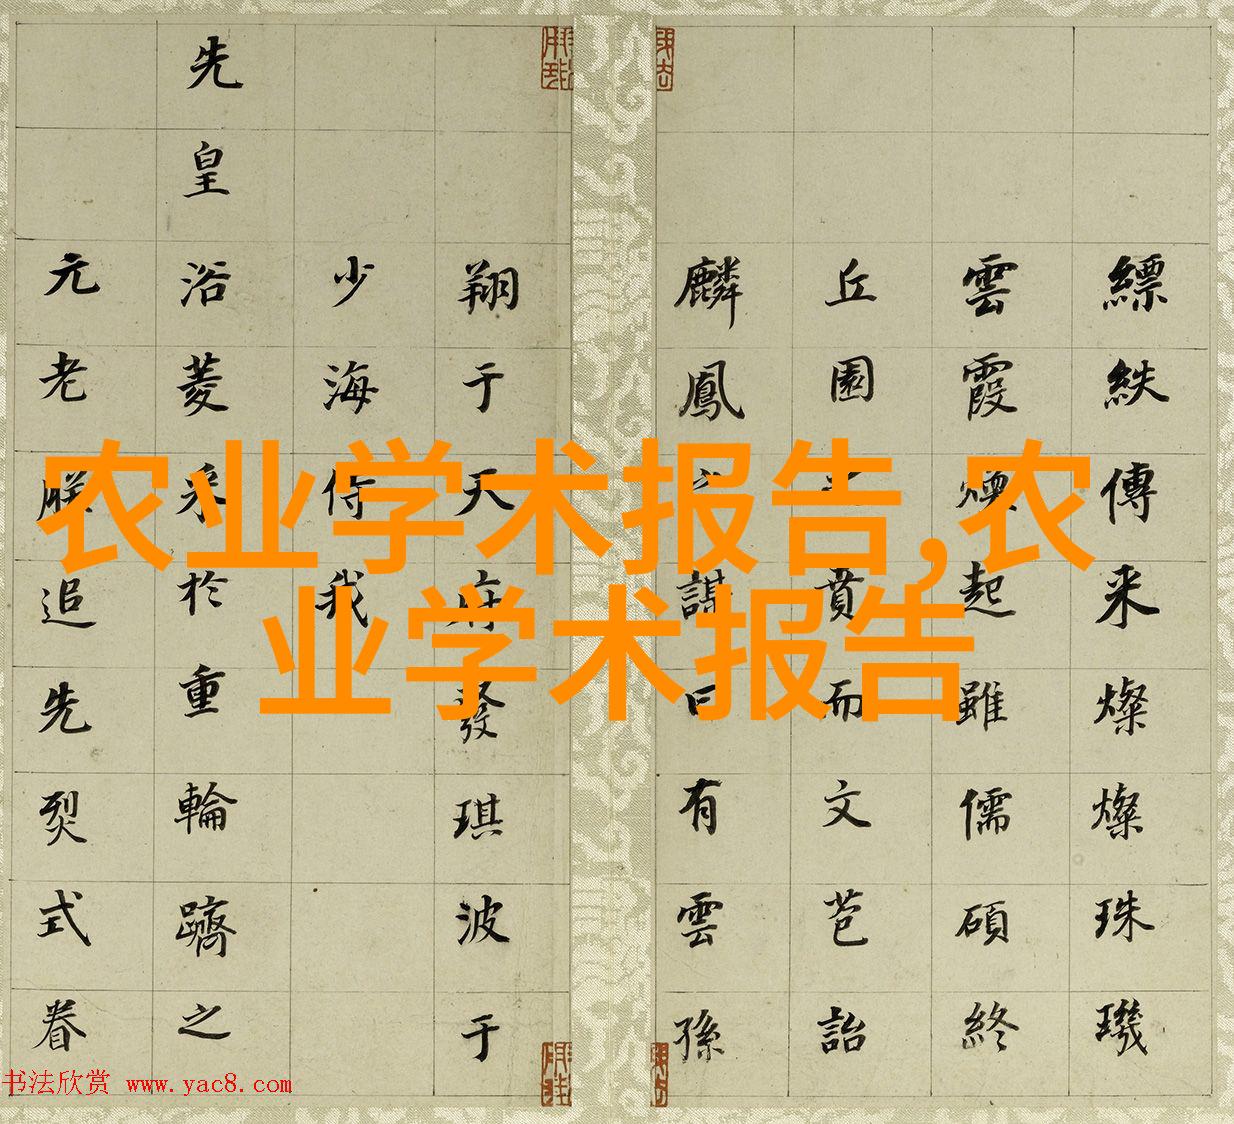 縹紩傳来燦燦珠璣
雲霞煥起雖儒碩終
丘園之賁而文芭詒
麟鳳之謀曰有雲孫
翔于天府發琪波于
少海侍我
先皇浴菱采於重輪躋之
元老朕追先烈式眷
农业学术报告,农
业学术报告
书法欣赏 www.yac8.com